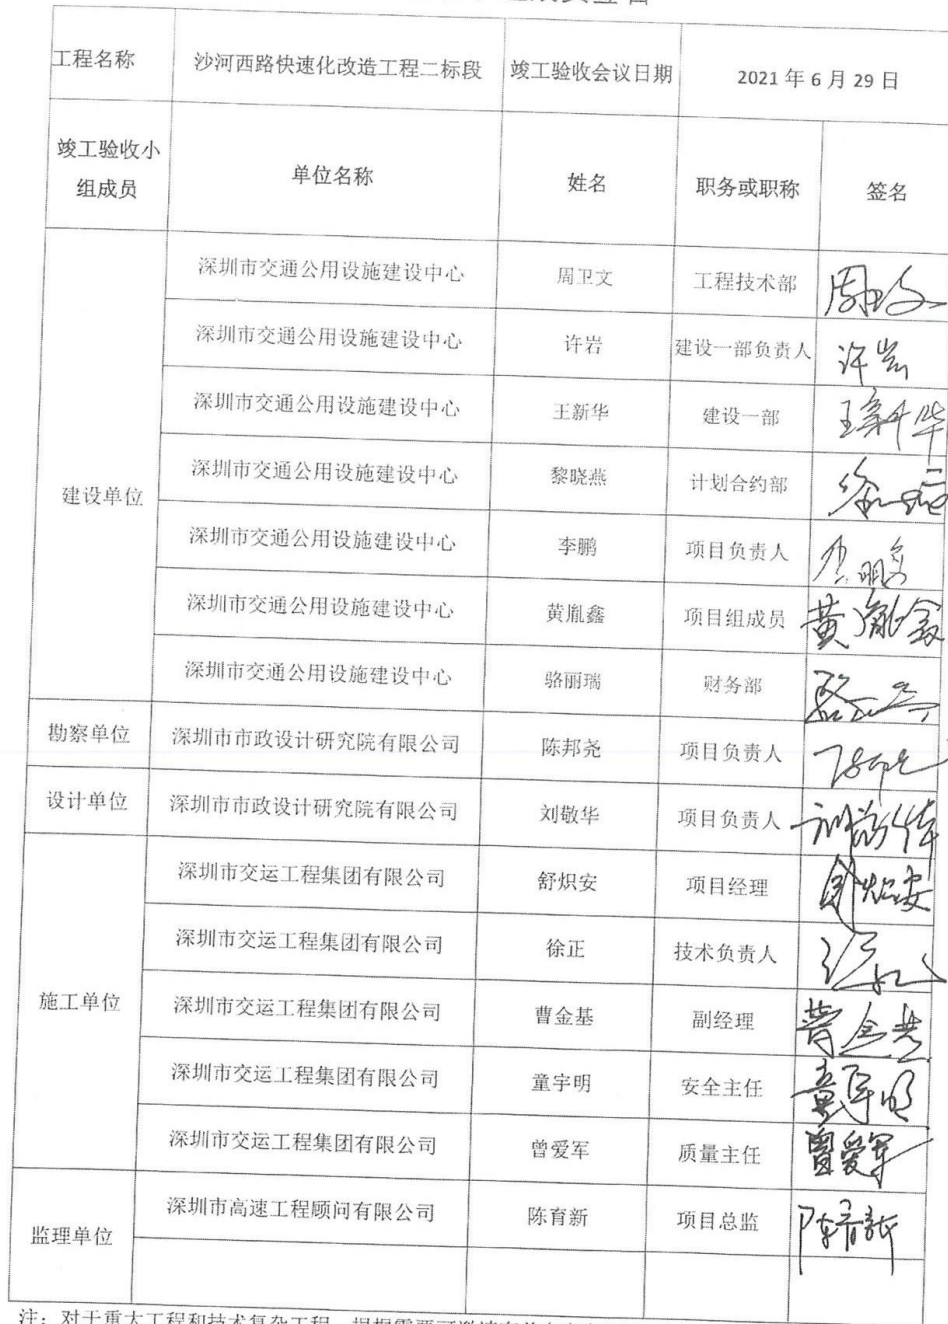 工程名称 沙河西路快速化改造工程二标段 竣工验收会议日期 2021 年 6 月 29 日
竣工验收小组成员 单位名称 姓名 职务或职称 签名
建设单位
深圳市交通公用设施建设中心 周卫文 工程技术部 周卫文
深圳市交通公用设施建设中心 许岩 建设一部负责人 许岩
深圳市交通公用设施建设中心 王新华 建设一部 王新华
深圳市交通公用设施建设中心 黎晓燕 计划合约部
深圳市交通公用设施建设中心 李鹏 项目负责人 李鹏
深圳市交通公用设施建设中心 黄胤鑫 项目组成员 黄胤鑫
深圳市交通公用设施建设中心 骆丽瑞 财务部
勘察单位 深圳市市政设计研究院有限公司 陈邦尧 项目负责人 陈邦尧
设计单位 深圳市市政设计研究院有限公司 刘敬华 项目负责人 刘敬华
施工单位
深圳市交运工程集团有限公司 舒炽安 项目经理 舒炽安
深圳市交运工程集团有限公司 徐正 技术负责人
深圳市交运工程集团有限公司 曹金基 副经理 曹金基
深圳市交运工程集团有限公司 童宇明 安全主任 童宇明
深圳市交运工程集团有限公司 曾爱军 质量主任 曾爱军
监理单位 深圳市高速工程顾问有限公司 陈育新 项目总监 陈育新
注：对于重大工程和技术复杂工程，根据需要可邀请